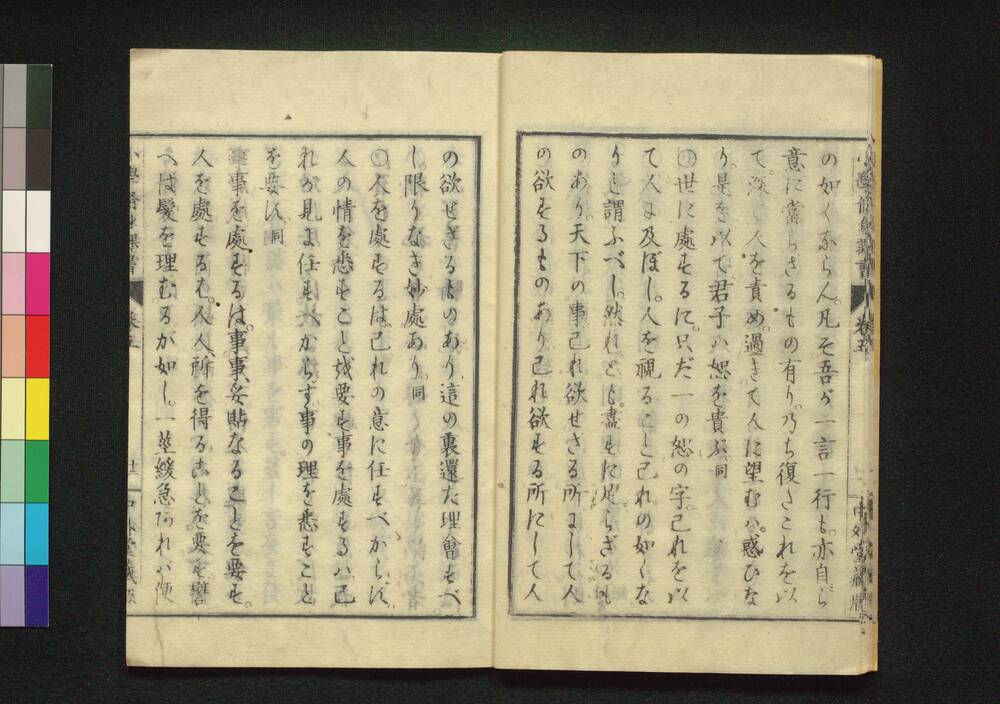 の如くならん。凡そ吾が一言一行も。亦自ら
意に當らざるもの有り。乃ち復さこれを以
て。深く人を責め。過きて人に望むハ。惑ひな
り。是を以て君子ハ恕を貴ぶ。同
〇世に處するに。只だ一の恕の字。己れを以
て人に及ぼし。人を視ること己れの如くな
りと謂ふべし。然れども。盡すに足らざるも
のあり。天下の事己れ欲せざる所にして人
の欲するものあり。己れ欲する所にして人
の欲せざるものあり。這の裏還た理會すべ
し。限りなき妙處あり。同
〇人を處するは。己れの意に任すべからず。
人の情を悉すこと或要す。事を處するハ。己
れが見に任すべからず。事の理を悉すこと
を要す。同
事事を處するは。事事妥貼なることを要す。
人を處するも。人人所を得ることを要す。譬
へば髪を理むるが如し。一莖緩急あれハ。便
小學脩身課書 卷五
中外堂藏版